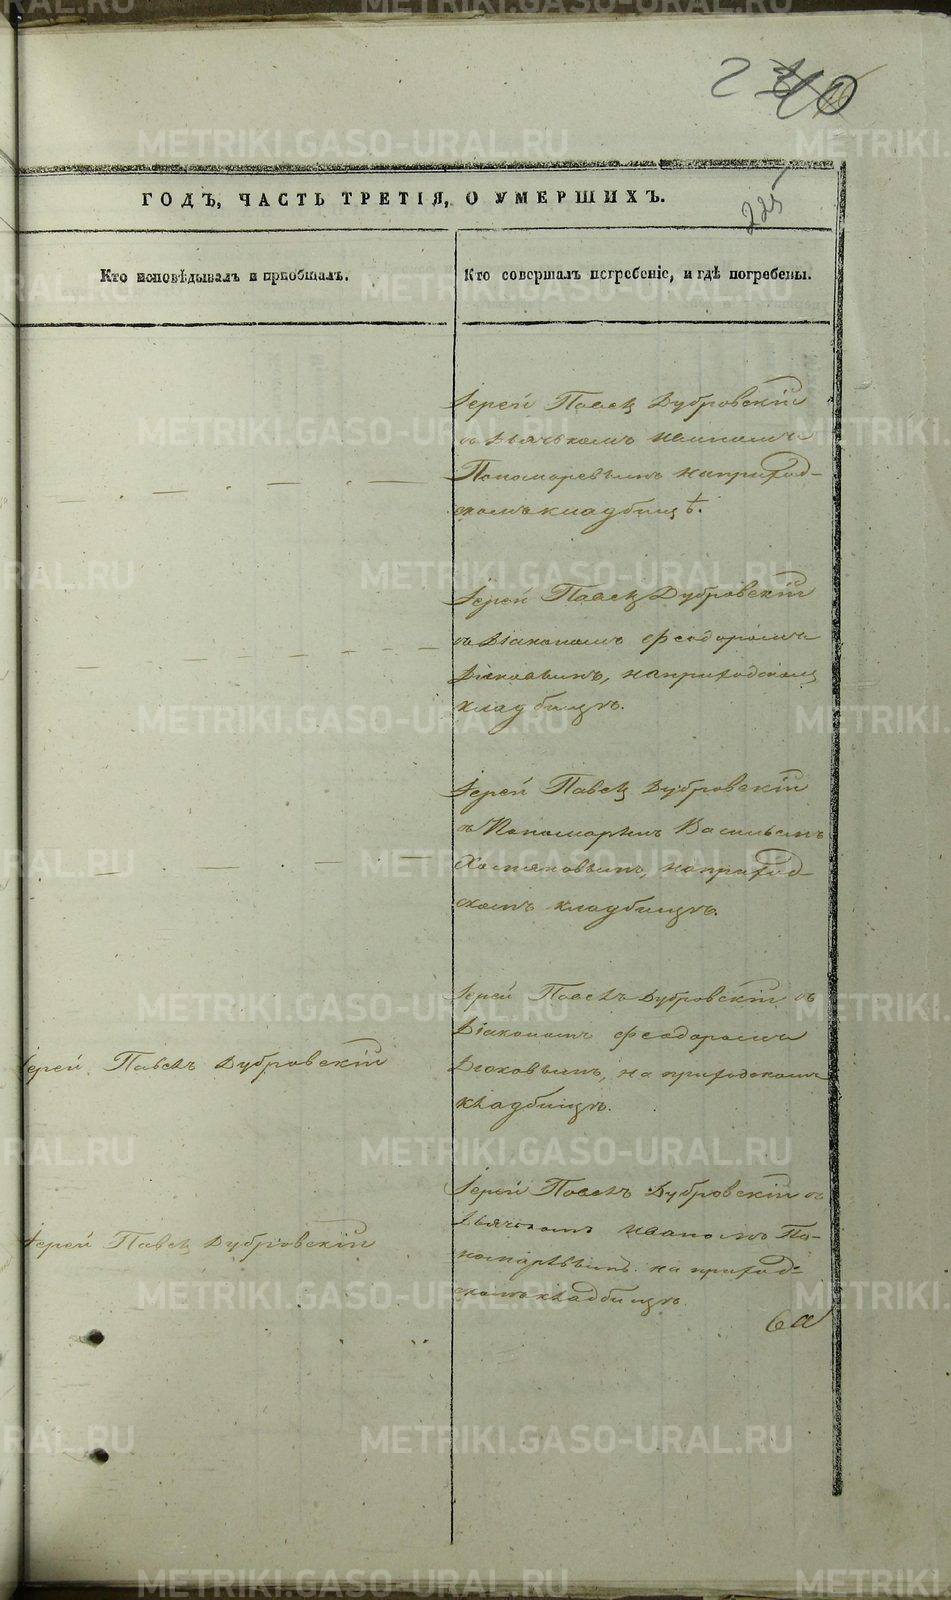 240
225
ГОДЪ, ЧАСТЬ ТРЕТІЯ, О УМЕРШИХЪ.
Кто исповѣдывалъ и пріобщалъ.
Кто совершалъ погребеніе, и гдѣ погребены.
Іерей Павелъ Дубровскій
съ Дьячькомъ Иваномъ
Пономаревымъ на приход-
скомъ кладбищѣ.
Іерей Павелъ Дубровскій
съ Діакономъ Феодоромъ
на приходскомъ
кладбищѣ.
Іерей Павелъ Дубровскій
съ Пономарѣмъ Васильемъ
Хомяковымъ, на приход-
скомъ кладбищѣ.
Іерей Павелъ Дубровскій
Іерей Павелъ Дубровскій съ
Діакономъ Феодоромъ
на приходскомъ
кладбищѣ.
Іерей Павелъ Дубровскій
Іерей Павелъ Дубровскій съ
Дьячькомъ Иваномъ По-
номарѣвымъ на приход-
скомъ кладбищѣ.
METRIKI.GASO-URAL.RU